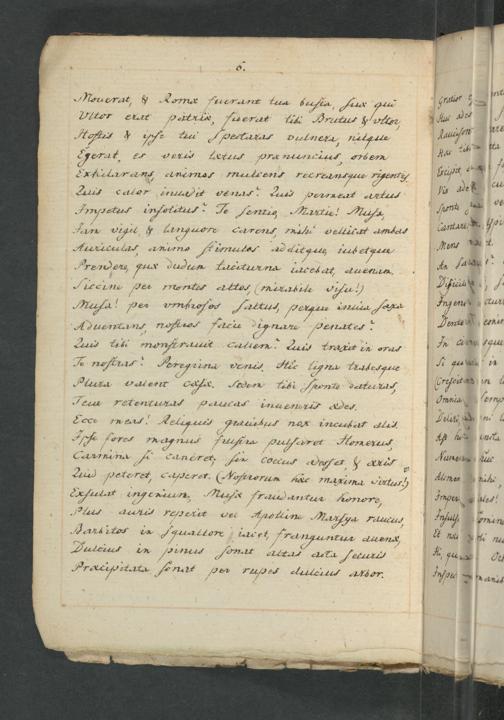 6.
Moverat, & Romæ fuerant tua busta, suæ qui
Vltor erat patriæ, fuerat tibi Brutus & vltor,
Hostis & ipse tui spectaras vulnera, nilque
Egerat, es veris lætus prænuncius, orbem
Exhilarans, animos mulcens recreansque rigentes.
Quis calor invasit venas? Quis permeat artus
Impetus insolitus? Te sentio, Martie! Musa,
Jam vigil, & languore carens, mihi vellicat ambas
Auriculas, animo stimulos additque, iubetque
Prendere, quæ dudum taciturna iacebat, avenam.
Siccine per montes altos, (mirabile visu!)
Musa! per vmbrosos saltus, perque invia saxa
Adventans, nostros facis dignare penates?
Quis tibi monstravit callem? Quis traxit in oras
Te nostras? Peregrina venis. Hic ligna trabesque
Plura valent Sedem tibi sponte daturas,
Teue retenturas paucas inveneris ædes.
Ecce meas! Reliquis gravibus nox incubat alis.
Ipse fores magnus frustra pulsaret Homerus,
Carmina si caneret, sin coecus adesset, & æris
Quid peteret, caperet. (Nostrorum hæc maxima virtus!)
Exsulat ingenium, Musæ fraudantur honore,
Plus auris reperit vel Apolline Marsya raucus,
Barbitos in squallore iacet, franguntur avenæ,
Dulcius in pinus sonat altas acta securis
Præcipitata sonat per rupes dulcius arbor.